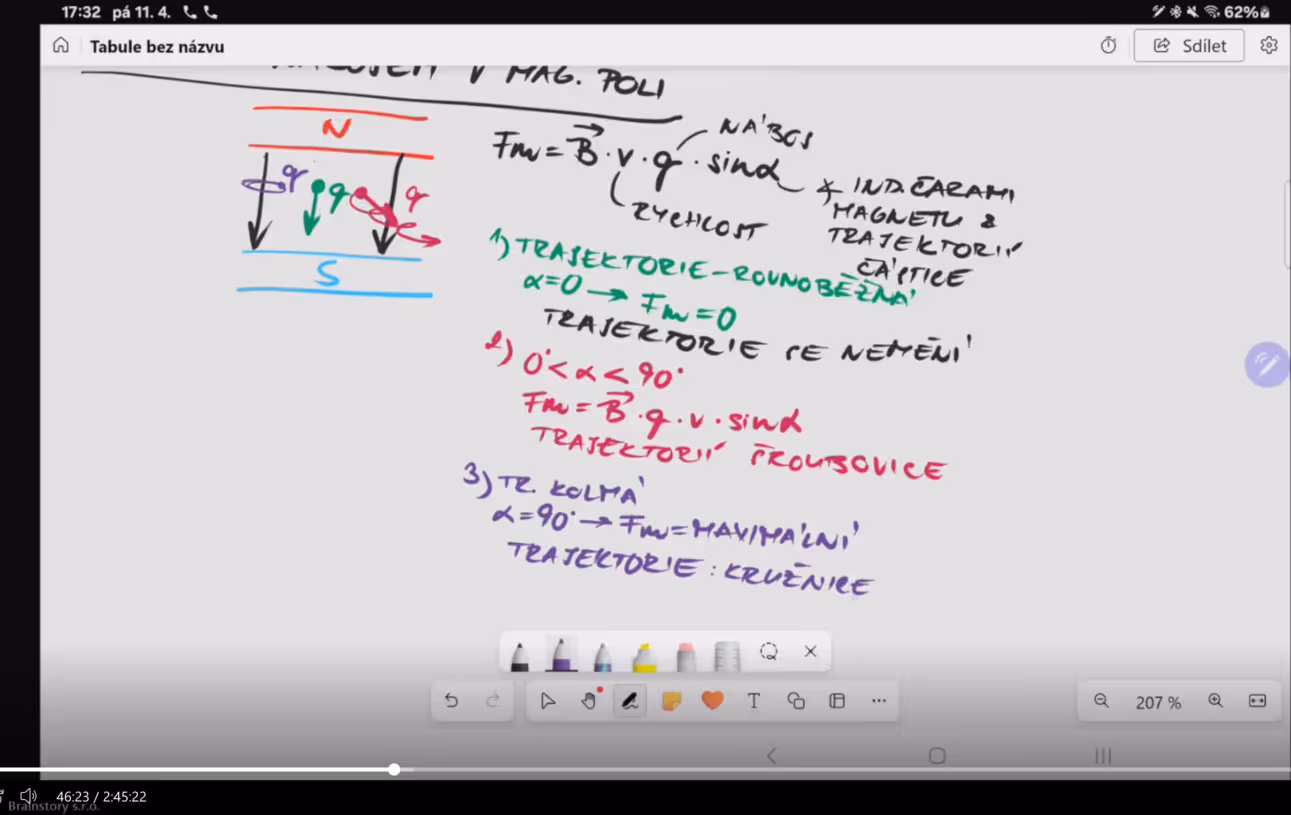 17:32 pá 11. 4. 62%
Tabule bez názvu
Sdílet
V MAG. POLI
N
q q q
S
Fm = B · v · q · sinα
NÁBOJ
RYCHLOST
∢ IND. ČARAMI
MAGNETU &
TRAJEKTORIÍ
ČÁSTICE
1) TRAJEKTORIE - ROVNOBĚŽNÁ
α = 0 → Fm = 0
TRAJEKTORIE SE NEMĚNÍ
2) 0° < α < 90°
Fm = B · q · v · sinα
TRAJEKTORIÍ ŠROUBOVICE
3) TR. KOLMÁ
α = 90° → Fm = MAXIMÁLNÍ
TRAJEKTORIE : KRUŽNICE
T
207 %
46:23 / 2:45:22
Brainstory s.r.o.